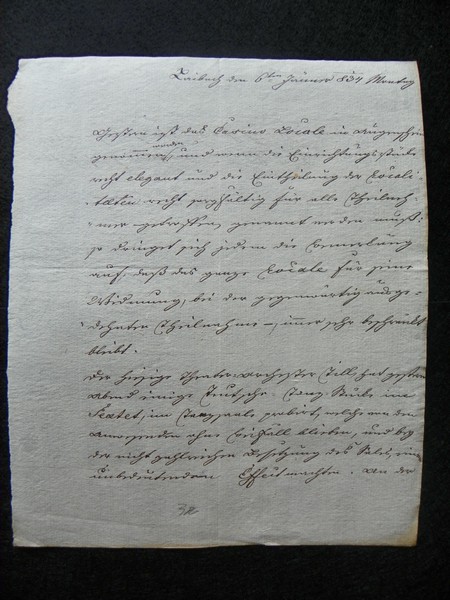 Laibach den 6ten Jänner 834 Montag
Gestern ist das Casino Locale in Augenschein
genommen worden, und wenn die Einrichtungsstücke
recht elegant und die Eintheilung der Locali-
täten recht sorgfältig für alle Theilneh-
mer getroffen, genannt werden muß;
so dringet sich jedem die Bemerkung
auf, daß das ganze Locale für seine
Widmung, bei der gegenwärtig ausge-
dehnten Theilnahme, immer sehr beschränkt
bleibt.
Der hiesige Theater-Orchester hat gestern
Abend einige deutsche Tanz Stücke im
Sextet, im Tanzsaale probirt, welche von den
Anwesenden ohne Beifall blieben, und bey
der nicht zahlreichen Besetzung des Sales, einen
unbedeutenden Effect machten. An der
32